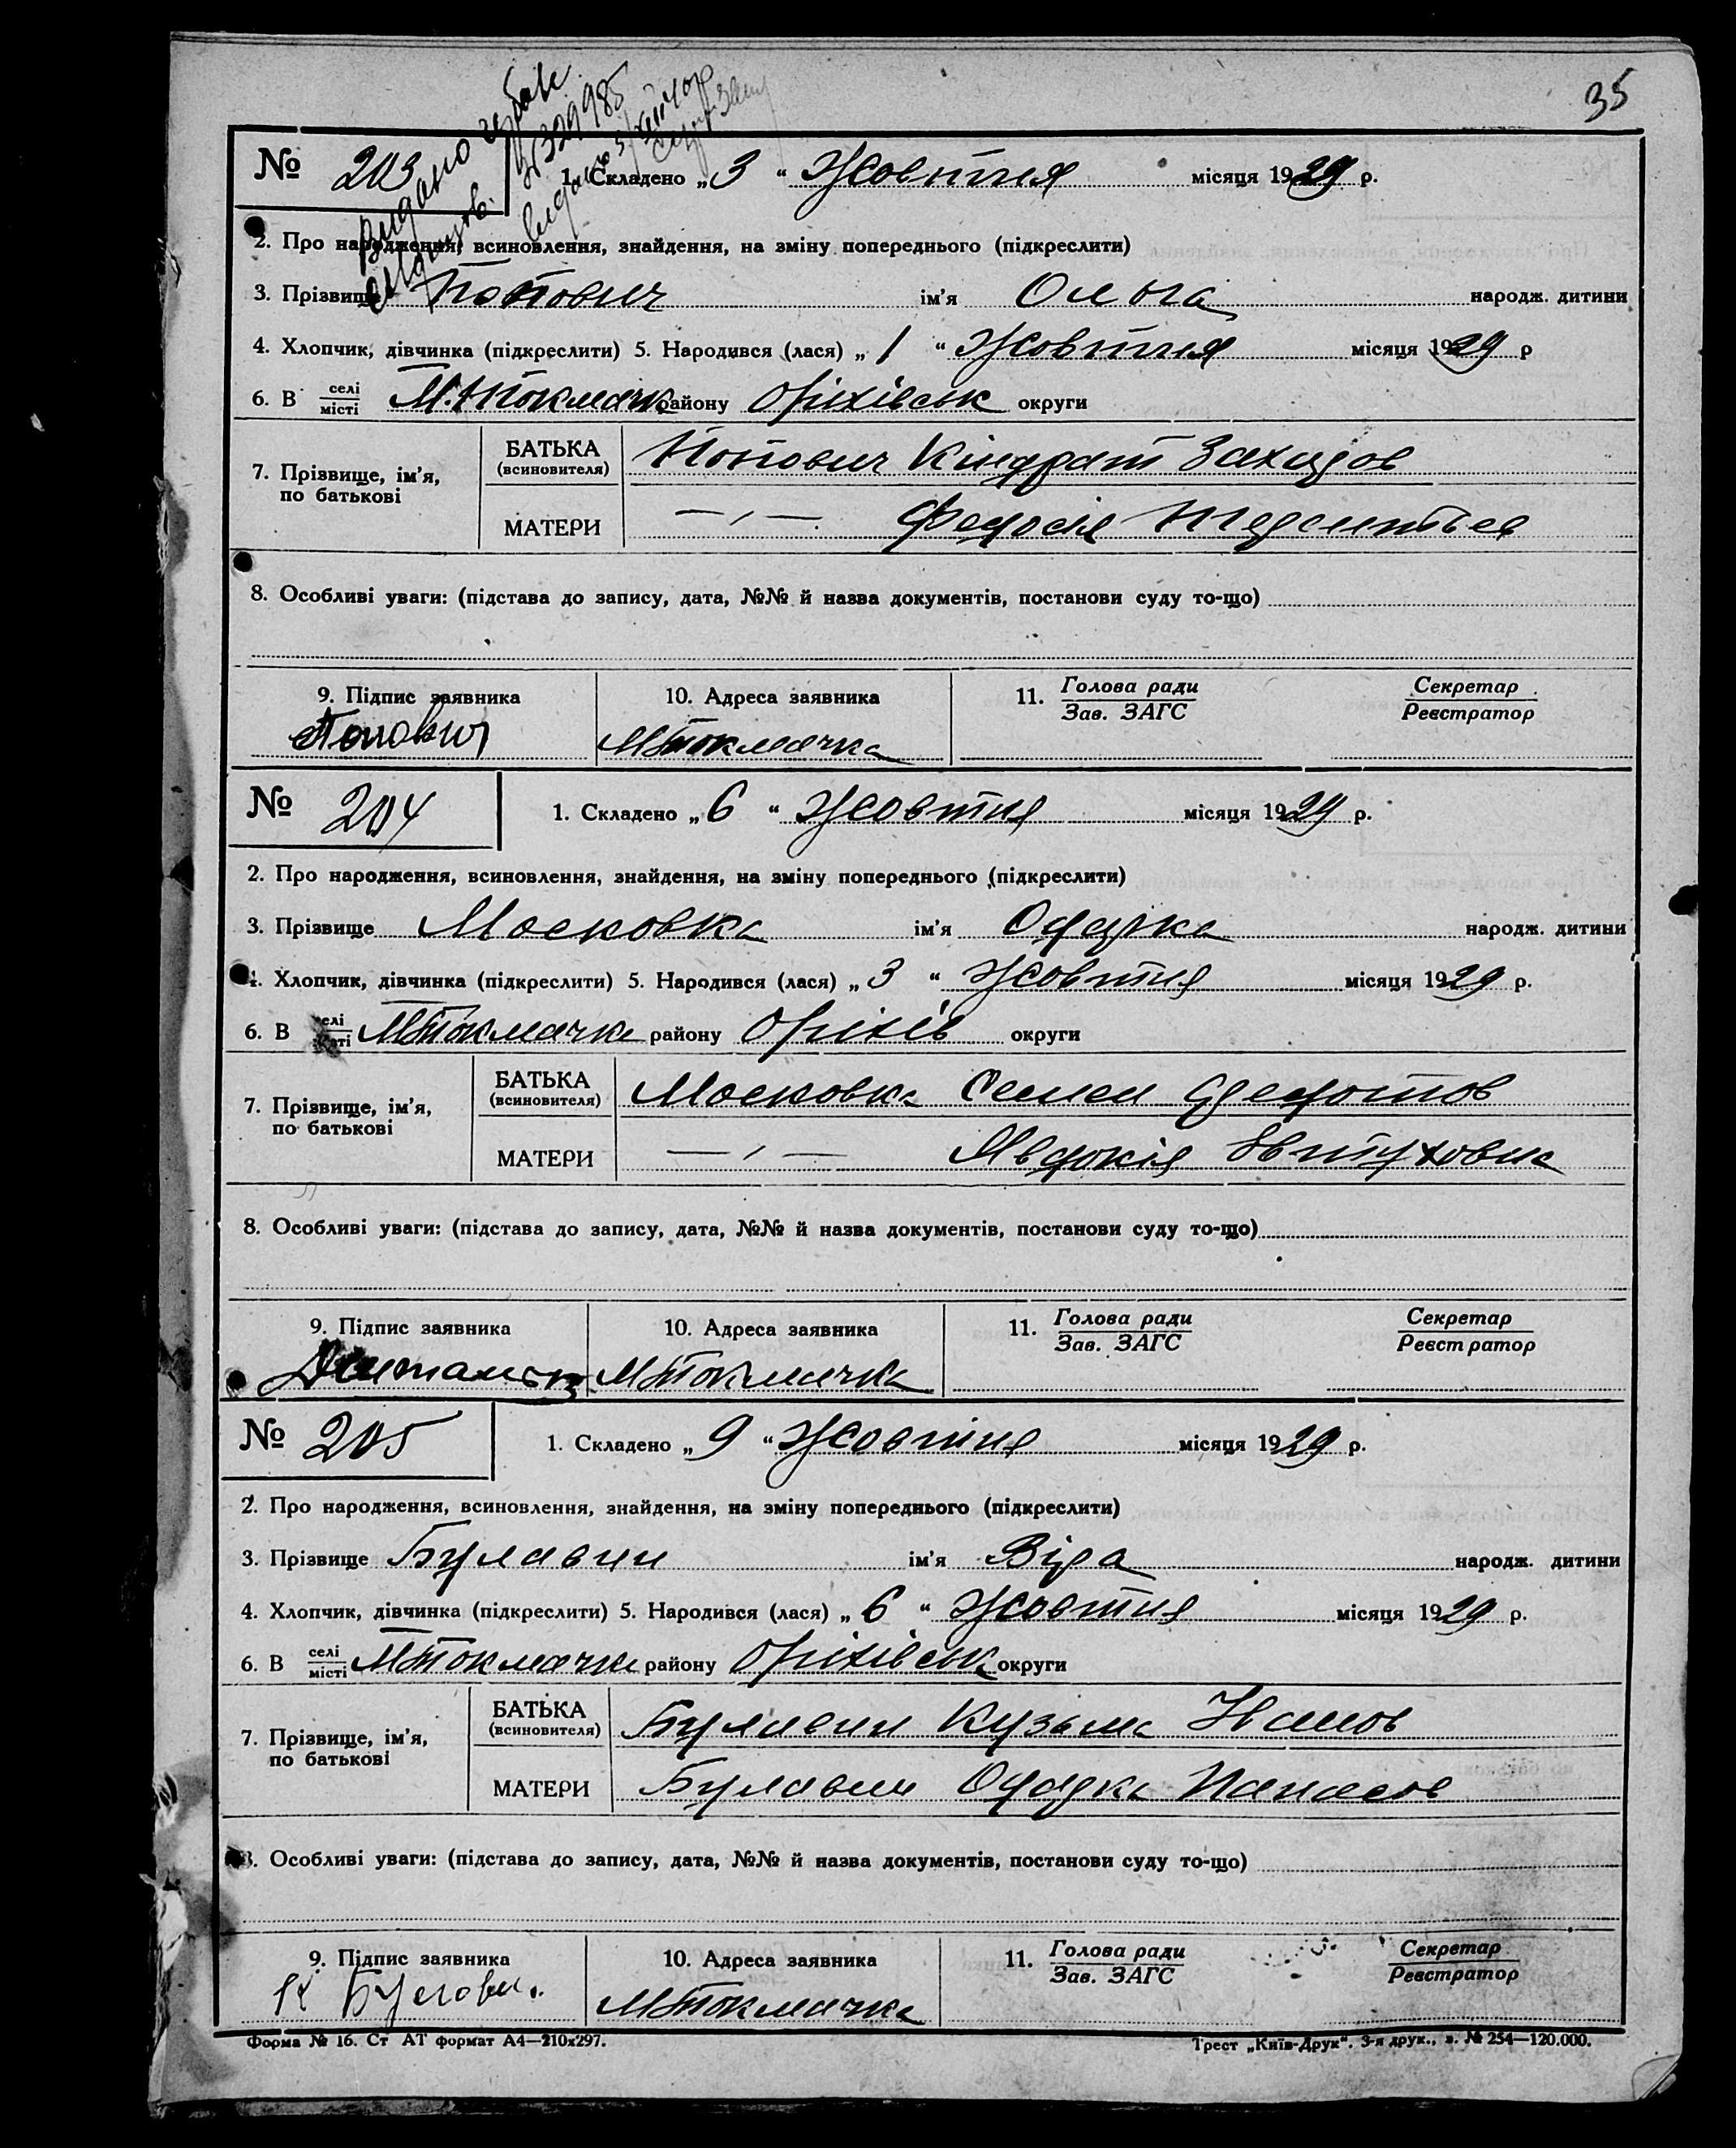 35
Видано
№ 203 1. Складено „ 3 “ Жовтня місяця 1929 р.
2. Про народження, всиновлення, знайдення, на зміну попереднього (підкреслити)
3. Прізвище Попович ім’я Ольга народж. дитини
4. Хлопчик, дівчинка (підкреслити) 5. Народився (лася) „ 1 “ Жовтня місяця 1929 р
6. В селі місті М.Токмачк району Оріхівськ округи
7. Прізвище, ім’я, по батькові БАТЬКА (всиновителя) Попович Кіндрат Захаров
МАТЕРИ —„— Федосія
8. Особливі уваги: (підстава до запису, дата, №№ й назва документів, постанови суду то-що)
9. Підпис заявника 10. Адреса заявника 11. Голова ради Зав. ЗАГС Секретар Реєстратор
Попович М.Токмачка
№ 204 1. Складено „ 6 “ Жовтня місяця 1929 р.
2. Про народження, всиновлення, знайдення, на зміну попереднього (підкреслити)
3. Прізвище Московка ім’я Одарка народж. дитини
4. Хлопчик, дівчинка (підкреслити) 5. Народився (лася) „ 3 “ Жовтня місяця 1929 р.
6. В селі місті М.Токмачка району Оріхів округи
7. Прізвище, ім’я, по батькові БАТЬКА (всиновителя) Московка Семен Федотов
МАТЕРИ —„— Явдокія Євтуховна
8. Особливі уваги: (підстава до запису, дата, №№ й назва документів, постанови суду то-що)
9. Підпис заявника 10. Адреса заявника 11. Голова ради Зав. ЗАГС Секретар Реєстратор
М.Токмачка
№ 205 1. Складено „ 9 “ Жовтня місяця 1929 р.
2. Про народження, всиновлення, знайдення, на зміну попереднього (підкреслити)
3. Прізвище Булавин ім’я Віра народж. дитини
4. Хлопчик, дівчинка (підкреслити) 5. Народився (лася) „ 6 “ Жовтня місяця 1929 р.
6. В селі місті М.Токмачка району Оріхівськ округи
7. Прізвище, ім’я, по батькові БАТЬКА (всиновителя) Булавин Кузьма
МАТЕРИ Булавин Одарка Панасов
8. Особливі уваги: (підстава до запису, дата, №№ й назва документів, постанови суду то-що)
9. Підпис заявника 10. Адреса заявника 11. Голова ради Зав. ЗАГС Секретар Реєстратор
К Булавин М.Токмачка
Форма № 16. Ст АТ формат А4—210х297. Трест „Київ-Друк“. 3-я друк., з. № 254—120.000.